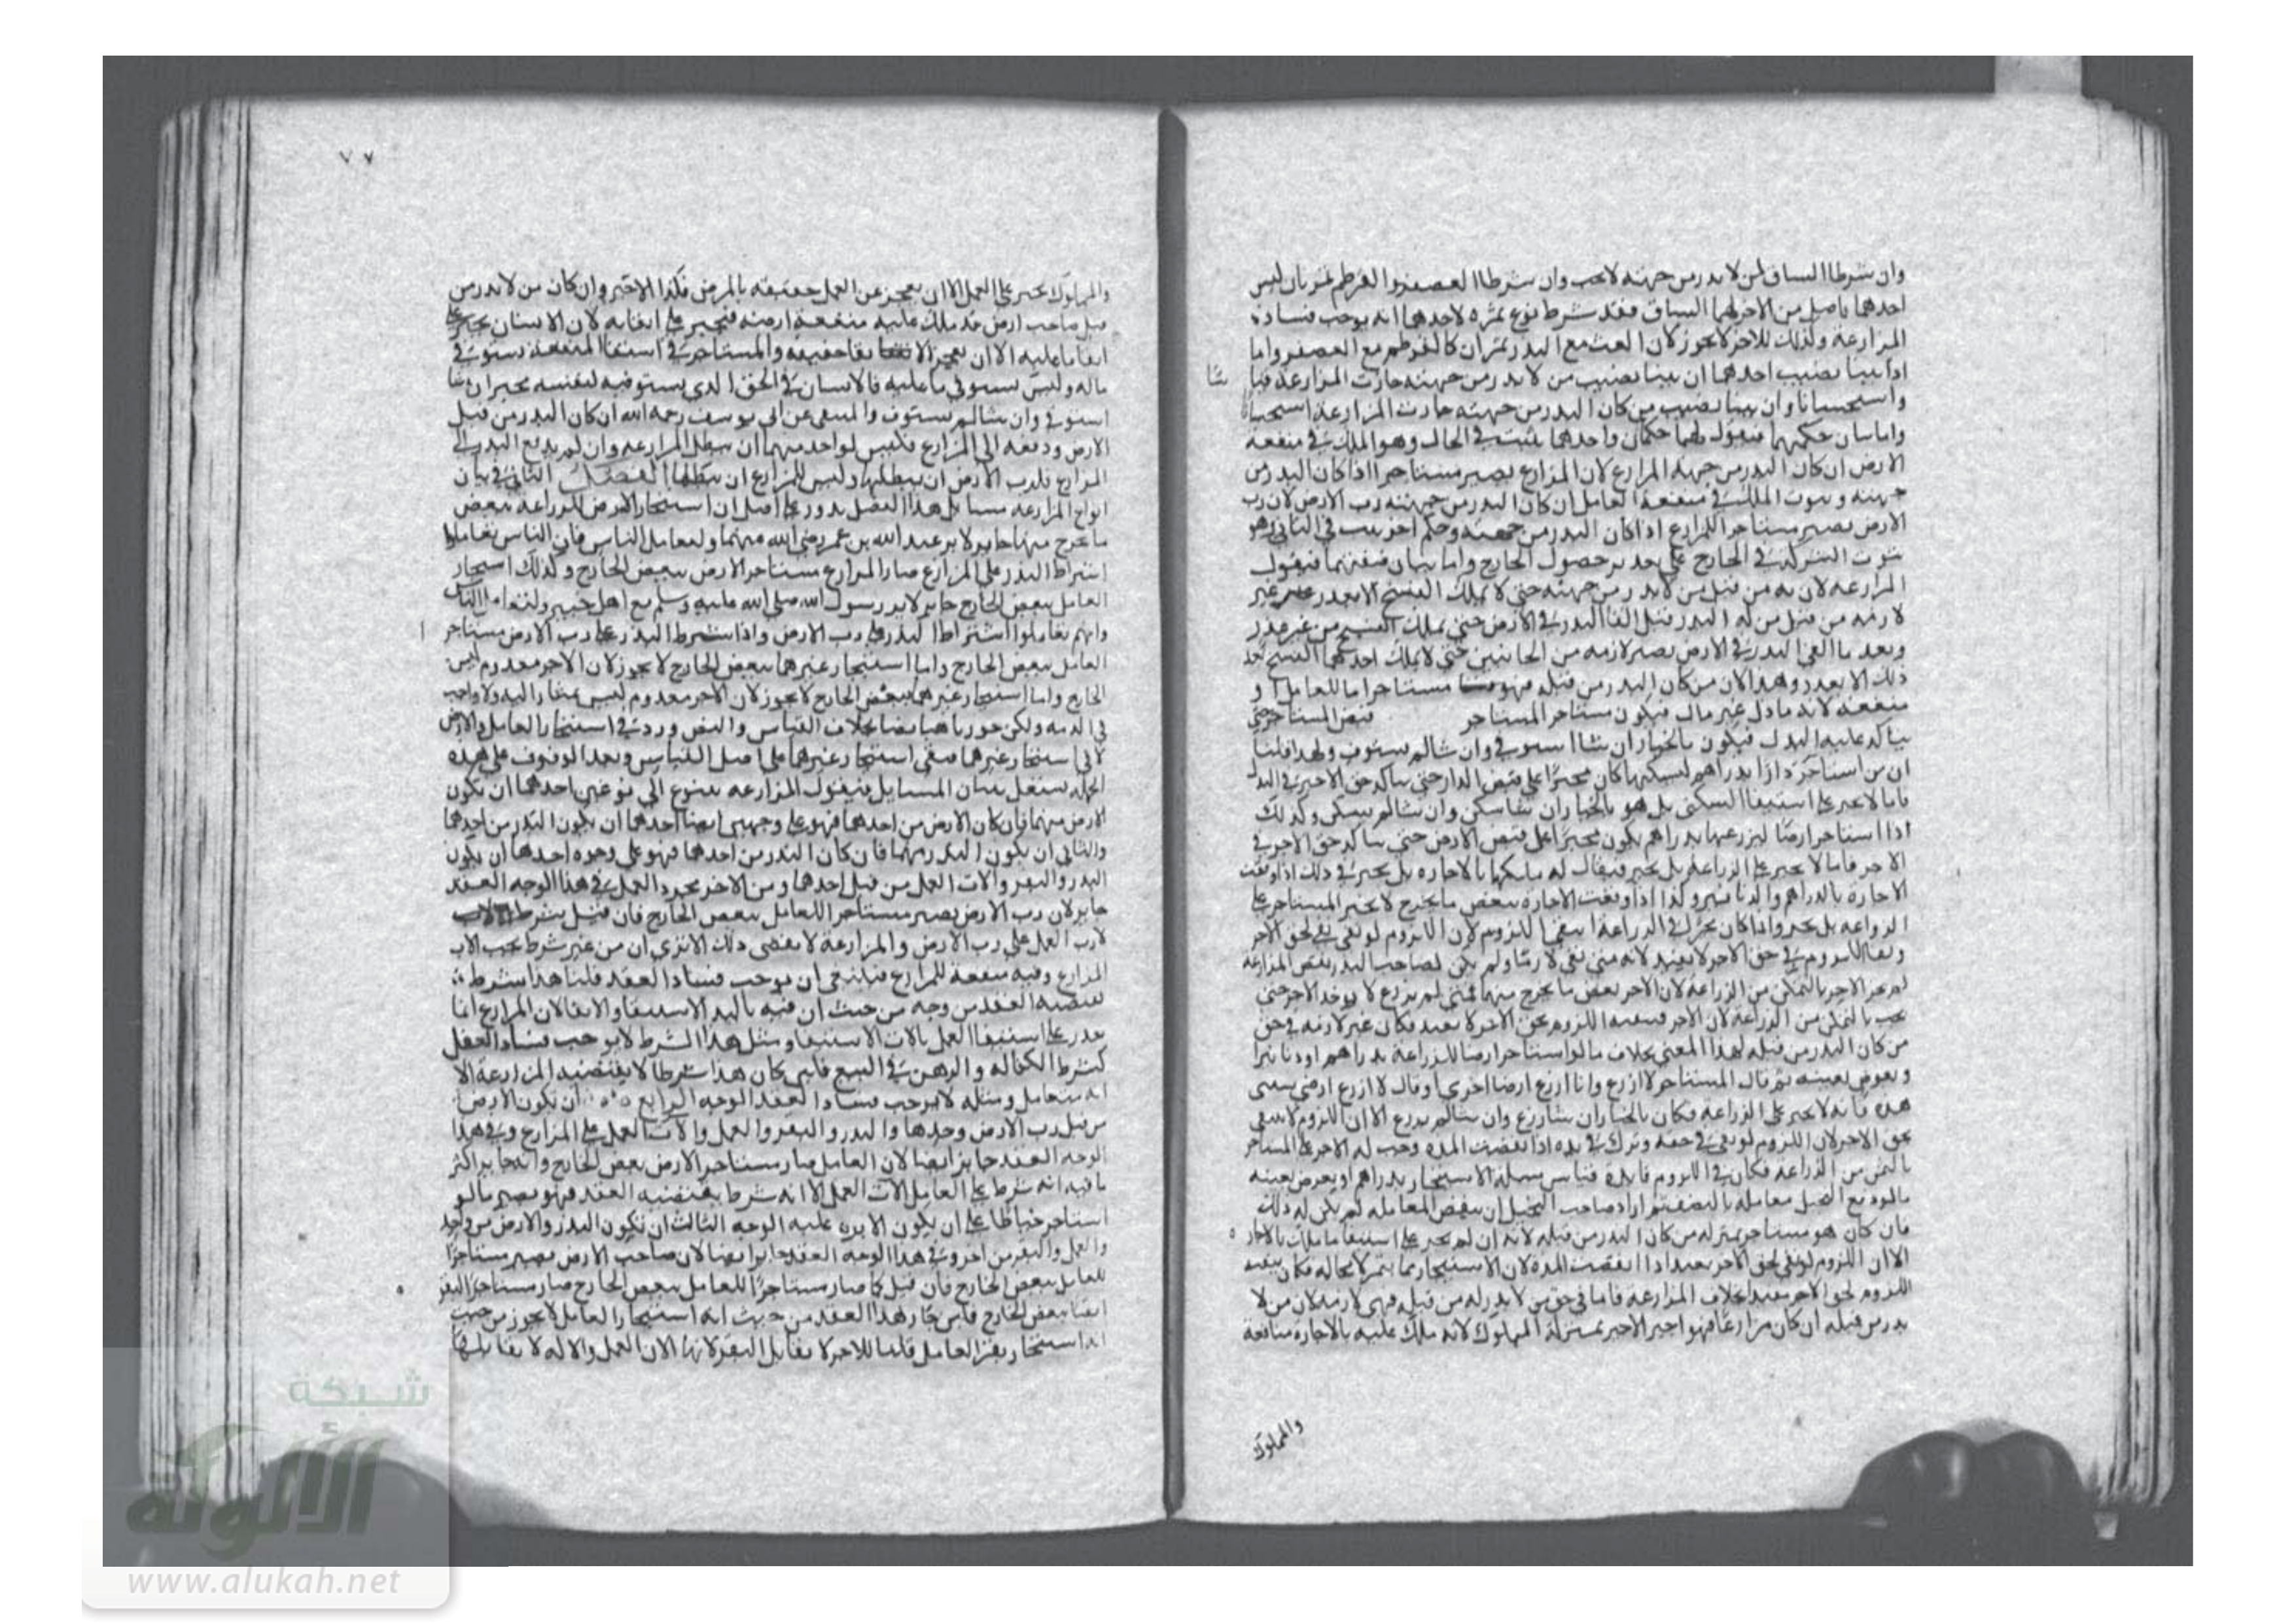 وان شرطا الساق لمن لا بذر من جهته لا يجب وان شرطا العصفر والقرطم
احدهما باصل من الاخر انما الساق فقد شرط نوع ثمره لاحدهما انه يوجب فساد
المزارعة وكذلك للاخر لا يجوز لان مع البذر كالقرطم مع العصفر واما
اذا بينا نصيب احدهما ان بينا نصيب من لا بذر من جهته جازت المزارعة قيا
سًا
واستحسانا وان بينا نصيب من كان البذر من جهته جازت المزارعة استحسانا
واما بيان حكمها فنقول لها حكمان واحدهما يثبت في الحال وهو الملك في منفعة
الارض ان كان البذر من جهة المزارع لان المزارع يصير مستاجرا اذا كان البذر من
جهته وثبوت الملك في منفعة العامل ان كان البذر من جهته رب الارض لان رب
الارض يصير مستاجرا للمزارع اذا كان البذر من جهته وحكم اخر يثبت في الثاني وهو
ثبوت الشركة في الخارج على حصول الخارج واما بيان صفتها فنقول
المزارعة لازمه من قبل من لا بذر من جهته حتى لا يملك الفسخ الا بعذر غير
لازمه من قبل من له البذر قبل القا البذر في الارض حتى يملك الفسخ من غير عذر
وبعد ما القي البذر في الارض يصير لازمه من الجانبين حتى لا يملك احدهما الفسخ بعد
ذلك الا بعذر وهذا لان من كان البذر من قبله فهو مستاجر اما للعامل او
منفعته لانه مال فيكون مستاجر المستاجر قبض المستاجر حتى
يتاكد عليه البدل فيكون بالخيار ان شا استوفي وان شا لم يستوف ولهذا قلنا
ان من استاجر دارا بدراهم ليسكنها كان مجبرا على قبض الدار حتى يتاكد حق الاجير في البدل
فاما لا يجبر على استيفا السكنى بل هو بالخيار ان شا سكن وان شا لم يسكن وكذلك
اذا استاجر ارضا ليزرعها بدراهم يكون مجبرا على قبض الارض حتى يتاكد حق الاجر في
الاجر فاما لا يجبر على الزراعة بل يخير فيقال له ملكتها بالاجارة بل يخير في ذلك اذا وقعت
الاجارة بالدراهم والدنانير وكذا اذا وقعت الاجارة ببعض ما يخرج لا يجبر المستاجر على
الزراعة بل يخير واذا كان يخير في الزراعة انتفى اللزوم لان اللزوم لو بقي بقي لحق الاجر
وبقا اللزوم في حق الاجر لا يفيد لانه متى بقي لازما ولم يكن لصاحب البذر نقض المزارعة
لم يجب الاجر بالتمكن من الزراعة لان الاجر بعض ما يخرج منها فمتى لم يزرع لا يوجد الاجر حتى
يجب بالتمكن من الزراعة لان الاجر اللزوم بحق الاجر لا يفيد فكان غير لازمه في حق
من كان البذر من قبله لهذا المعنى بخلاف ما لو استاجر ارضا للزراعة بدراهم او دنانير
وبعوض بعينه ثم قال المستاجر لا ازرع وانا ازرع ارضا اخرى او قال لا ازرع ارضي
هذه فانه لا يجبر على الزراعة فكان بالخيار ان شا زرع وان شا لم يزرع الا ان اللزوم لا ينتفي
بحق الاجر لان اللزوم لو بقي في حقه وترك في يده اذا انقضت المدة وجب له الاجر على المستاجر
بالتمكن من الزراعة فكان في اللزوم فايدة قياس مسلة الاستيجار بدراهم او بعوض بعينه
ما لو دفع النخيل معاملة بالنصف ثم اراد صاحب النخيل ان ينقض المعاملة لم يكن له ذلك
فان كان هو مستاجر بمنزلة من كان البذر من قبله لانه ان لم يجبر على استيفا ما ملك بالاجار
الا ان اللزوم لو بقي لحق الاجر يفيد اذا انقضت المدة لان الاستيجار بما يثمر لا محالة فكان
اللزوم لحق الاجر مفيدا بخلاف المزارعة فاما في حق من لا بذر له من قبله فهي لازمة لان من لا
بذر من قبله ان كان مزارعا فهو اجير الاجير بمنزلة المملوك لانه ملك عليه بالاجارة منافعه
والمملوك
٧٧
والمملوك يجبر على العمل الا ان يعجز عن العمل حقيقة بالمرض فكذا الاجير وان كان من لا بذر من
قبل صاحب ارض قد ملك عليه منفعة ارضه فيجبر على ايفايه لان الانسان يجبر على
ايفا ما عليه الا ان يعجز الايفا حقيقة والمستاجر في استيفا المنفعة يستوفي
ماله وليس يستوفي ما عليه فالانسان في الحق الذي يستوفيه لنفسه يخير ان شا
استوفي وان شا لم يستوف والمنتقى عن ابي يوسف رحمه الله ان كان البذر من قبل
الارض ودفعه الى المزارع فليس لواحد منهما ان يبطل المزارعة وان لم يدفع البذر الى
المزارع فلرب الارض ان يبطلها وليس للمزارع ان يبطلها الفصل الثاني في بيان
انواع المزارعة مسايل هذا الفصل يدور على اصل ان استيجار الارض للزراعة ببعض
ما يخرج منها جايز لاثر عبد الله بن عمر رضي الله عنهما ولتعامل الناس فان الناس تعاملوا
اشتراط البذر على المزارع صار المزارع مستاجر الارض ببعض الخارج وكذلك استيجار
العامل ببعض الخارج جايز لاثر رسول الله صلى الله عليه وسلم مع اهل خيبر ولتعامل الناس
وانهم تعاملوا اشتراط البذر على رب الارض واذا شرط البذر على رب الارض مستاجر
العامل ببعض الخارج واما استيجار غيرهما ببعض الخارج لا يجوز لان الاجر معدوم ليس
الخارج واما استيجار غيرهما ببعض الخارج لا يجوز لان الاجر معدوم ليس بمشار اليه ولا واجب
في الذمة ولكن جوزناهما نصا بخلاف القياس والنص ورد في استيجار العامل والارض
لا في استيجار غيرهما فبقي استيجار غيرهما على اصل القياس وبعد الوقوف على هذه
الجملة نشتغل ببيان المسايل فنقول المزارعة تتنوع الى نوعين احدهما ان يكون
الارض منهما فان كان الارض من احدهما فهو على وجهين ايضا احدهما ان يكون البذر من احدهما
والثاني ان يكون البذر منهما فان كان البذر من احدهما فهو على وجوه احدها ان يكون
البذر والبقر والات العمل من قبل احدهما ومن الاخر مجرد العمل في هذا الوجه العقد
جايز لان رب الارض يصير مستاجرا للعامل ببعض الخارج فان قيل بشرط
لرب العمل على رب الارض والمزارعة لا يقتضي ذلك الا ترى ان من غير شرط يجب الات
المزارع وفيه منفعة للمزارع فينبغي ان يوجب فساد العقد قلنا هذا شرط
يقتضيه العقد من وجه من حيث ان فيه تاكيد الاستيفا والايفا لان المزارع انما
يقدر على استيفا العمل بالات الاستيفا ومثل هذا الشرط لا يوجب فساد العقد
كشرط الكفالة والرهن في البيع فليس كان هذا شرطا لا يقتضيه المزارعة الا
انه متعامل ومثله لا يوجب فساد العقد الوجه الرابع ان يكون الارض
من قبل رب الارض وحدها والبذر والبقر والعمل والات العمل على المزارع وفي هذا
الوجه العقد جايز ايضا لان العامل صار مستاجر الارض ببعض الخارج وانه جايز اكثر
ما فيه انه شرط على العامل الات العمل الا انه شرط يقتضيه العقد فهو يصير ما لو
استاجر خياطا على ان يكون الابرة عليه الوجه الثالث ان يكون البذر والارض من واحد
والعمل والبقر من اخر وفي هذا الوجه العقد جايز ايضا لان صاحب الارض يصير مستاجرا
للعامل ببعض الخارج فان قيل كما صار مستاجرا للعامل ببعض الخارج صار مستاجر البقر
ايضا ببعض الخارج فليس جاز هذا العقد من حيث انه استيجار العامل لا يجوز من حيث
انه استيجار بقر العامل قلنا الاجر لا يقابل البقر لانها الات العمل والاله لا يقابلها
شبكة
الألوكة
www.alukah.net